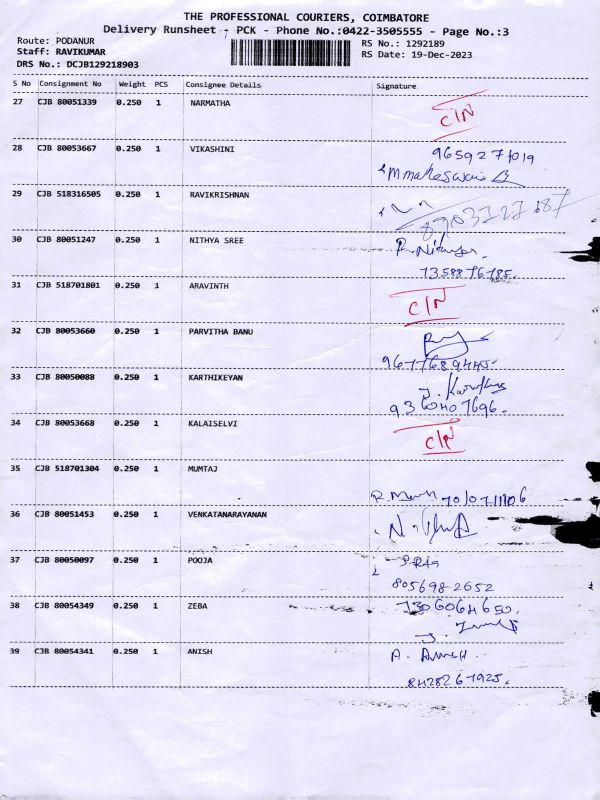 THE PROFESSIONAL COURIERS, COIMBATORE
Delivery Runsheet - PCK - Phone No.:0422-3505555 - Page No.:3
Route: PODANUR
RS No.: 1292189
Staff: RAVIKUMAR
RS Date: 19-Dec-2023
DRS No.: DCJB129218903
S No Consignment No Weight PCS Consignee Details Signature
27 CJB 80051339 0.250 1 NARMATHA
C/N
28 CJB 80053667 0.250 1 VIKASHINI
9659277019
29 CJB 518316505 0.250 1 RAVIKRISHNAN
30 CJB 80051247 0.250 1 NITHYA SREE
7358876785.
31 CJB 518701801 0.250 1 ARAVINTH
C/N
32 CJB 80053660 0.250 1 PARVITHA BANU
33 CJB 80050088 0.250 1 KARTHIKEYAN
9360407696.
34 CJB 80053668 0.250 1 KALAISELVI
C/N
35 CJB 518701304 0.250 1 MUMTAJ
36 CJB 80051453 0.250 1 VENKATANARAYANAN
37 CJB 80050097 0.250 1 POOJA
8056982652
38 CJB 80054349 0.250 1 ZEBA
7306064650.
39 CJB 80054341 0.250 1 ANISH
8428267925.